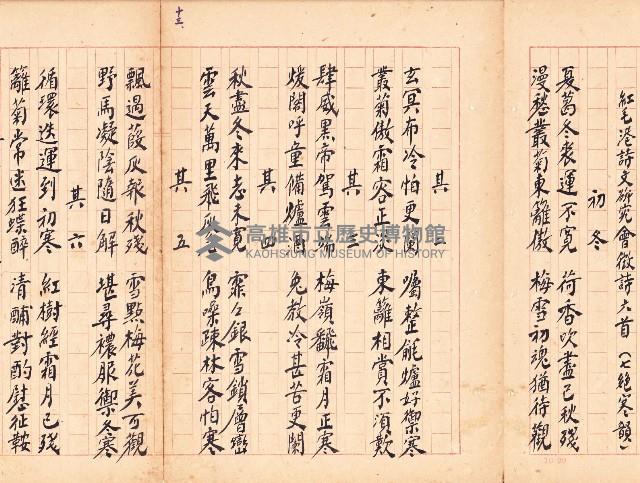 紅毛港詩文研究會徵詩六首（七絕寒韻）
初冬
夏葛冬裘運不寬　荷香吹盡已秋殘
漫愁叢菊東籬傲　梅雪初魂猶待觀
其二
玄冥布冷怕更闌　囑整能爐好禦寒
叢菊傲霜容正　東籬相賞不須歎
其三
肆威黑帝駕雲端　梅嶺飜霜月正寒
煖閣呼童備爐　免教冷甚苦更闌
其四
秋盡冬來志未寬　霏々銀雪鎖層巒
雲天萬里飛灰　鳥噪疎林客怕寒
其五
飄過葭灰報秋殘　雪點梅花美可觀
野馬凝陰隨日解　堪尋襛服禦冬寒
其六
循環迭運到初寒　紅樹經霜月已殘
籬菊常迷狂蝶醉　清酺對酌慰征鞍
十三
高雄市立歷史博物館
KAOHSIUNG MUSEUM OF HISTORY